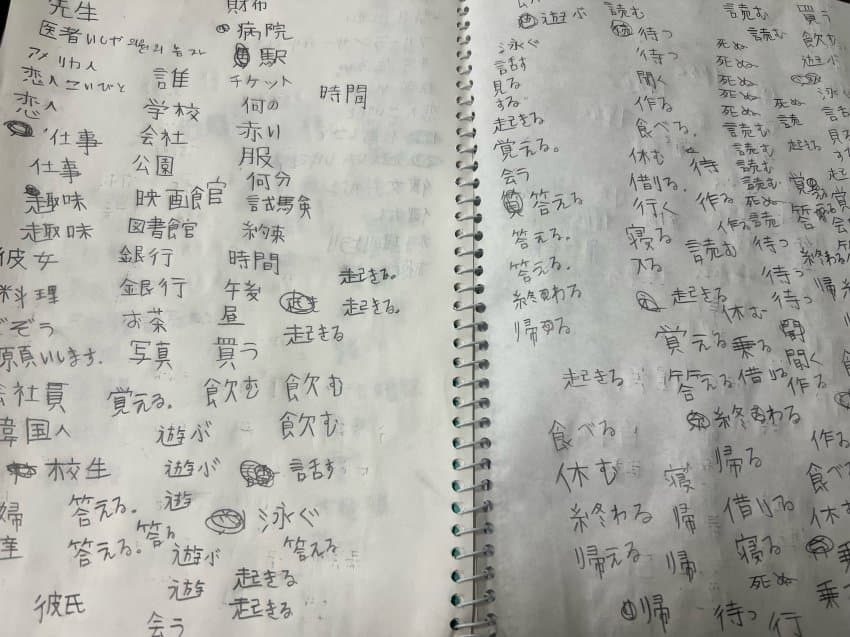 先生
医者いしゃ
アメリカ人
恋人こいびと
恋人
仕事
仕事
趣味
趣味
彼女
料理
どぞう
願いします.
会社員
韓国人
校生
婦
産
彼氏
誰
学校
会社
公園
映画館官
図書館
銀行
銀行
お茶
写真
覚える.
遊ぶ
遊ぶ
答える.
遊
答る
答える.
遊ぶ
遊
会う
財布
病院
駅
チケット
何の
赤い
服
何分
試験
約束
時間
午後
昼
買う
飲む
時間
起きる.
起きる.
起きる
飲む
飲む
話す
泳ぐ
答える
起きる
起きる
遊ぶ
泳ぐ
話す
見る
する
起きる
覚える.
会う
答える
答える.
答える.
終わる
帰る
起きる
食べる
休む
終わる
帰える
読む
待つ
待つ
聞く
作る
食べる.
休む
借りる.
行く
寝る
入る
起きる
覚える
答える
寝
帰
帰
帰
待
作る
作る
読む
休む
乗る
借りる
終わる
帰る
借りる
寝る
死ぬ
待つ
行
読む
読む
死ぬ
死ぬ
死ぬ
死ぬ
死ぬ
読む
読
読む
読む
読む
読む
読
待つ
待つ
待つ
聞
聞く
作る
買う
飲む
遊ぶ
泳
話
見
起きる
起
覚
答
会
終わる
帰
作る
食べ
休む
乗
乗